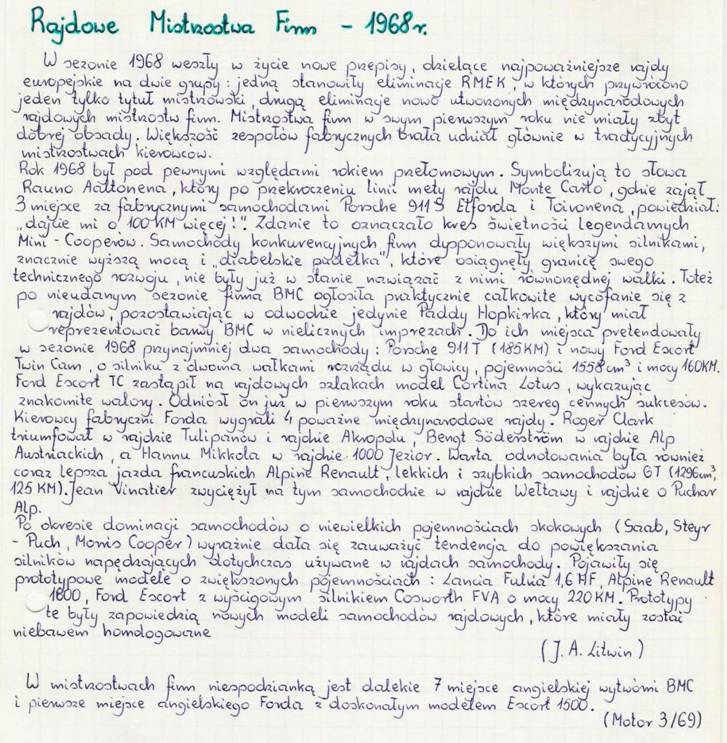 Rajdowe Mistrzostwa Firm - 1968r.
W sezonie 1968 weszły w życie nowe przepisy, dzielące najpoważniejsze rajdy
europejskie na dwie grupy: jedną stanowiły eliminacje RMEK, w których przywrócono
jeden tylko tytuł mistrzowski, drugą eliminacje nowo utworzonych międzynarodowych
rajdowych mistrzostw firm. Mistrzostwa firm w swym pierwszym roku nie miały zbyt
dobrej obsady. Większość zespołów fabrycznych brała udział głównie w tradycyjnych
mistrzostwach kierowców.
Rok 1968 był pod pewnymi względami rokiem przełomowym. Symbolizują to słowa
Rauno Aaltonena, który po przekroczeniu linii mety rajdu Monte Carlo, gdzie zajął
3 miejsce za fabrycznymi samochodami Porsche 911S Elforda i Toivonena, powiedział:
"dajcie mi o 100KM więcej!". Zdanie to oznaczało kres świetności legendarnych
Mini-Cooperów. Samochody konkurencyjnych firm dysponowały większymi silnikami,
znacznie wyższą mocą i "diabelskie pudełka", które osiągnęły granicę swego
technicznego rozwoju, nie były już w stanie nawiązać z nimi równorzędnej walki. Toteż
po nieudanym sezonie firma BMC ogłosiła praktycznie całkowite wycofanie się z
rajdów, pozostawiając w odwodzie jedynie Paddy Hopkirka, który miał
reprezentować barwy BMC w nielicznych imprezach. Do ich miejsca pretendowały
w sezonie 1968 przynajmniej dwa samochody: Porsche 911T (185KM) i nowy Ford Escort
Twin Cam, o silniku z dwoma wałkami rozrządu w głowicy, pojemności 1558cm³ i mocy 160KM.
Ford Escort TC zastąpił na rajdowych szlakach model Cortina Lotus, wykazując
znakomite walory. Odniósł on już w pierwszym roku startów szereg cennych sukcesów.
Kierowcy fabryczni Forda wygrali 4 poważne międzynarodowe rajdy. Roger Clark
triumfował w rajdzie Tulipanów i rajdzie Akropolu, Bengt Söderström w rajdzie Alp
Austriackich, a Hannu Mikkola w rajdzie 1000 Jezior. Warta odnotowania była również
coraz lepsza jazda francuskich Alpine Renault, lekkich i szybkich samochodów GT (1296cm³,
125 KM). Jean Vinatier zwyciężył na tym samochodzie w rajdzie Wełtawy i rajdzie o Puchar
Alp.
Po okresie dominacji samochodów o niewielkich pojemnościach skokowych (Saab, Steyr
-Puch, Morris Cooper) wyraźnie dała się zauważyć tendencja do powiększania
silników napędzających dotychczas używane w rajdach samochody. Pojawiły się
prototypowe modele o zwiększonych pojemnościach: Lancia Fulvia 1,6 HF, Alpine Renault
1600, Ford Escort z wyścigowym silnikiem Cosworth FVA o mocy 220KM. Prototypy
te były zapowiedzią nowych modeli samochodów rajdowych, które miały zostać
niebawem homologowane
(J. A. Litwin)
W mistrzostwach firm niespodzianką jest dalekie 7 miejsce angielskiej wytwórni BMC
i pierwsze miejsce angielskiego Forda z doskonałym modelem Escort 1500.
(Motor 3/69)